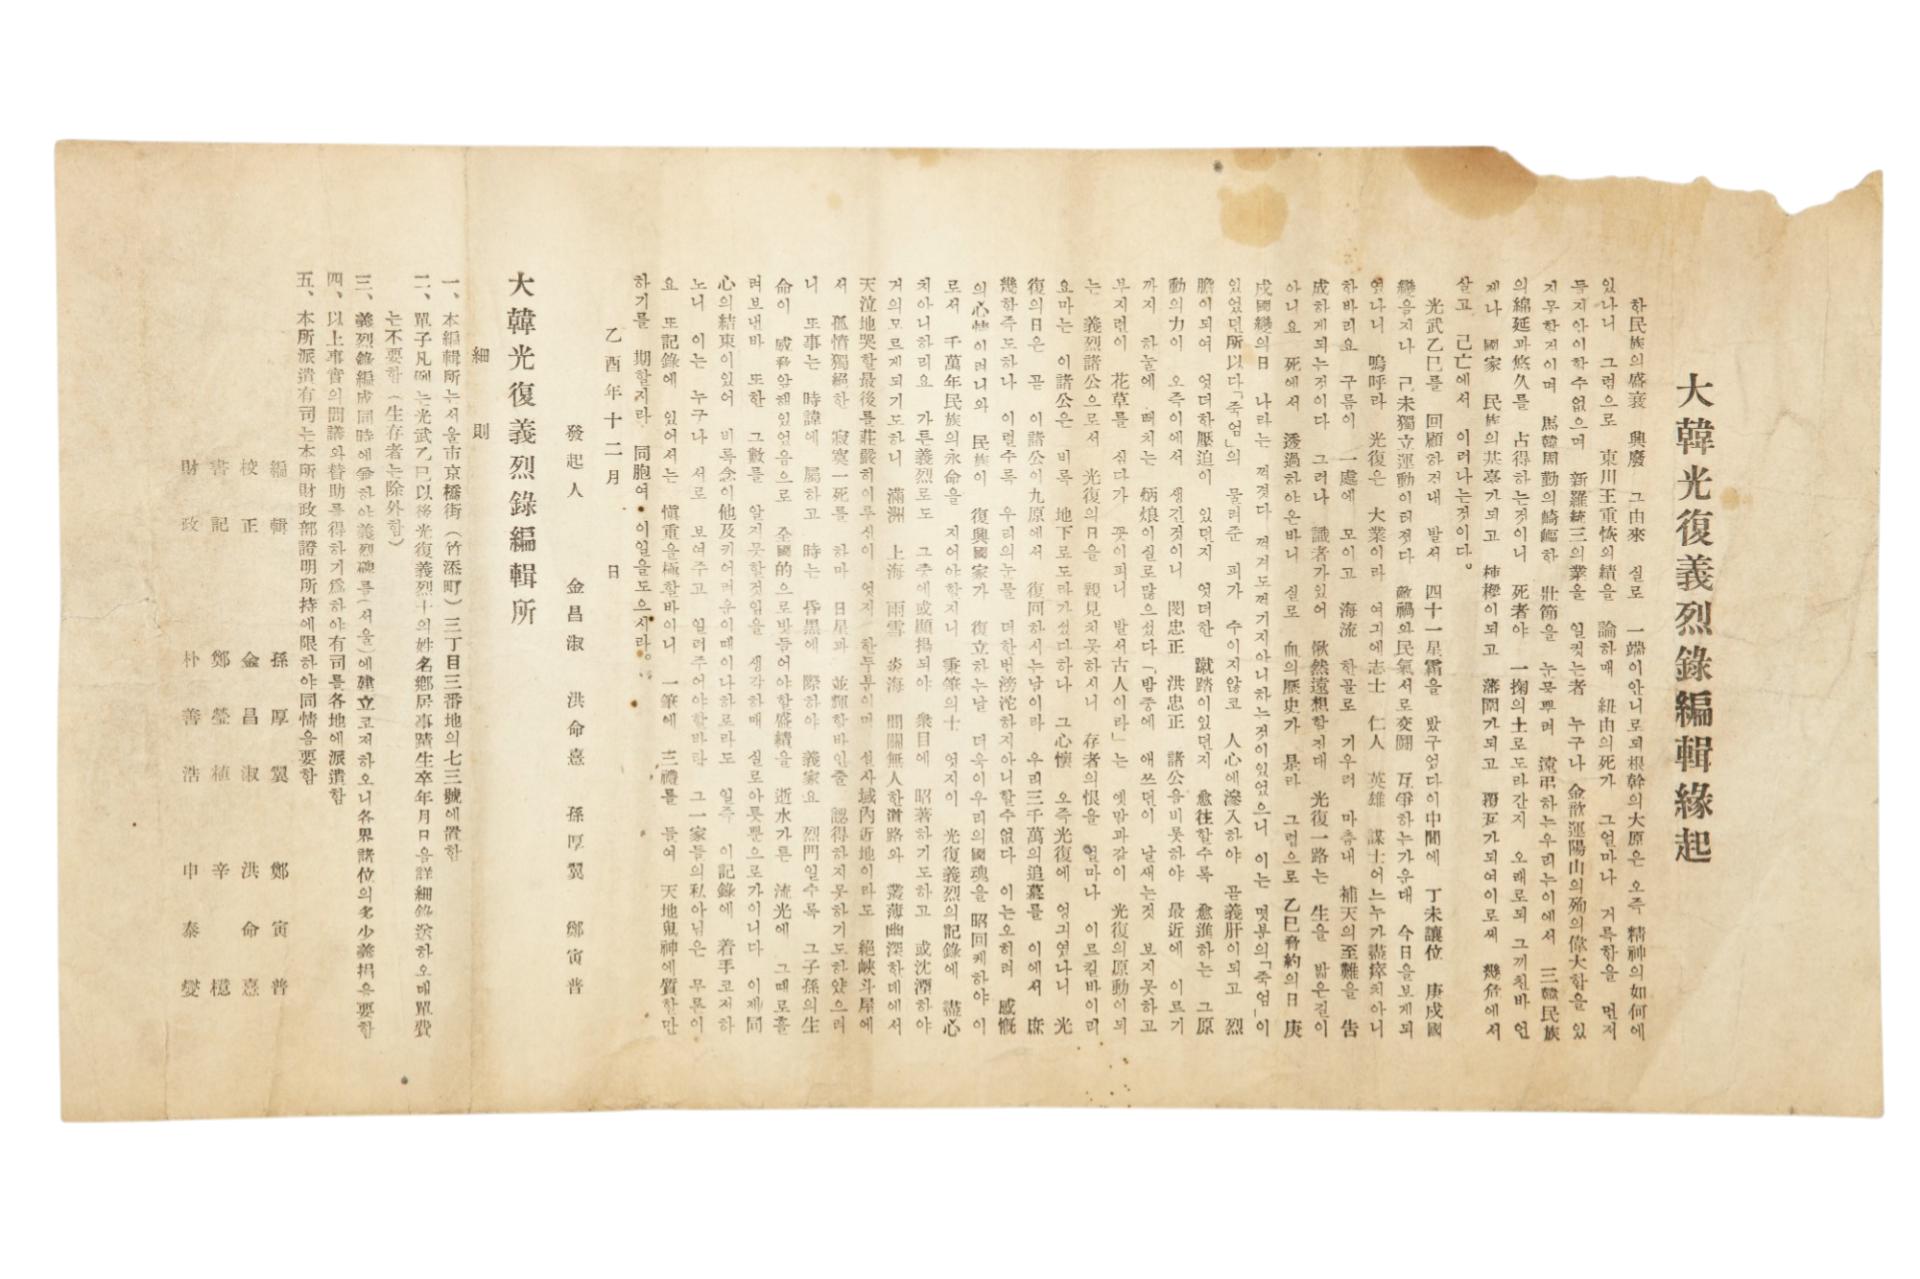 大韓光復義烈錄編輯緣起
한民族의盛衰 興廢 그由來 실로 一端이안니로되根幹의大原은 오즉 精神의如何에
있나니 그럼으로 東川王重恢의績을 論하매 紐由의死가 그얼마나 거륵함을 먼저
듯지아이할수없으며 新羅統三의業을 일컷는者 누구나 金歆運陽山의殉의偉大함을 있
지못할것이며 馬韓周勤의崎嶇한 壯節을 눈물뿌려 遠弔하는우리누이에서 三韓民族
의綿延과悠久를 占得하는것이니 死者야 一掬의土로도라간지 오래로되 그끼친바 언
제나 國家 民族의基臺가되고 柿樑이되고 藩閈가되고 覆瓦가되여이로써 幾危에서
살고 己亡에서 이러나는것이다。
光武乙巳를 回顧하건대 발서 四十一星霜을 밨구었다이中間에 丁未讓位 庚戌國
變을지나 己未獨立運動이러젓다 敵禍와民氣서로交鬪 互爭하는가운대 今日을보게되
엿나니 嗚呼라 光復은 大業이라 여긔에志士 仁人 英雄 謀士어느누가盡瘁치아니
한바리요 구름이 一處에 모이고 海流 한골로 기우러 마츰내 補天의至難을 告
成하게되는것이다 그러나 識者가있어 愀然遠想할진대 光復一路는 生을 밟은길이
아니요 死에서 透過하야온바니 실로 血의歷史가 是라 그럼으로 乙巳脅約의日 庚
戌國變의日 나라는 꺽겻다 꺽겨도꺽기지아니하는것이있었으니 이는 멋분의「죽엄」이
있었던所以다「죽엄」의 물려준 피가 수이지않코 人心에滲入하야 곰義肝이되고 烈
膽이되여 엇더한壓迫이 있던지 엇더한 蹴踏이있던지 愈往할수록 愈進하는 그原
動의力이 오즉이에서 생긴것이니 閔忠正 洪忠正 諸公을비롯하야 最近에 이르기
까지 하눌에 뻐치는 炳烺이실로많으섯다「밤중에 애쓰던이 날새는것 보지못하고
부지런이 花草를 심다가 꽃이피니 발서古人이라」는 옛말과같이 光復의原動이되
는 義烈諸公으로서 光復의日을 親見치못하시니 存者의恨을 얼마나 이르킬바이리
요마는 이諸公은 비록 地下로도라가섯다하나 그心懷 오즉光復에 엉긔엿나니 光
復의日은 곧 이諸公이九原에서 復回하시는날이라 우리三千萬의追慕를 이에서 庶
幾함즉도하나 이럴수록 우리의눈물 더한번滂沱하지아니할수없다 이는오히려 感慨
의心情이러니와 民族이 復興國家가 復立하는날 더욱이우리의國魂을 昭回케하야 이
로서 千萬年民族의永命을 지어야할지니 秉筆의士 엇지이 光復義烈의記錄에 盡心
치아니하리요 가튼義烈로도 그중에或顯揚되야 衆目에 昭著하기도하고 或沈潛하야
거의모르게되기도하니 滿洲 上海 雨雪 炎海 間關無人한道路와 叢薄幽深한데에서
天泣地哭할最後를莊嚴히이루신이 엇지 한두분이며 설사域內近地이라도 絕峽斗屋에
서 孤情獨絕한 寂寞一死를 하마 日星과 並輝할바인줄 認得하지못하기도하얐으려
니 또事는 時諱에 屬하고 時는 昏黑에 際하야 義家요 烈門일수록 그子孫의生
命이 威脅알해있었음으로 全國的으로밧들어야할盛績을 逝水가튼 流光에 그때로흘
려보낸바 또한 그數를 알지못할것임을 생각하매 실로아못뿐으로가이니다 이제同
心의結束이있어 비록念이他及키어려운이때이나하로라도 일즉 이記錄에 着手코저하
노니 이는 누구나 서로 보여주고 일러주어야할바라 그一家들의私아님은 무론이
요 또記錄에 있어서는 愼重을極할바이니 一筆에 三禮를 들여 天地鬼神에質할만
하기를 期할지라 同胞여 이일을도으시라。
乙酉年十二月 日
發起人 金昌淑 洪命憙 孫厚翼 鄭寅普
大韓光復義烈錄編輯所
細則
一、本編輯所는서울市京橋街(竹添町)三丁目三番地의七三號에置함
二、單子凡例는光武乙巳以後光復義烈士의姓名鄕居事蹟生卒年月日을詳細錄送하오매單費
는不要함(生存者는除外함)
三、義烈錄編成同時에爭하야義烈碑를(서울)에建立코저하오니各界諸位의多少義捐을要함
四、以上事實의問議와替助를得하기爲하야有司를各地에派遣함
五、本所派遣有司는本所財政部證明所持에限하야同情을要함
編輯 孫厚翼 鄭寅普
校正 金昌淑 洪命憙
書記 鄭瑩植 辛穩
財政 朴善浩 申泰燮